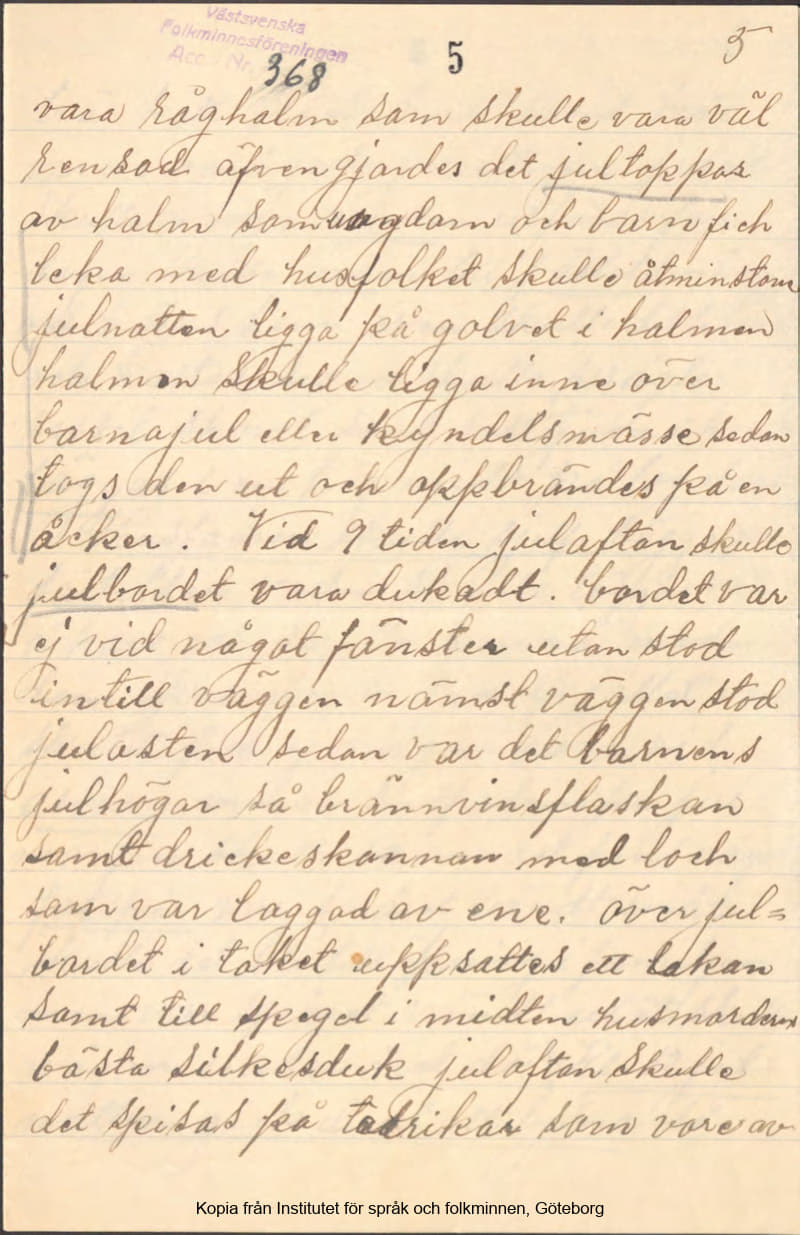 Västsvenska
Folkminnesföreningen
Acc. Nr. 368
5
5
vara råghalm som skulle vara väl
rensad äfven gjordes det jultoppar
av halm som ungdom och barn fich
leka med husfolket skulle åtminstone
julnatten ligga på golvet i halmen
halmen skulle ligga inne över
barnajul eller kyndelsmässe sedan
togs den ut och oppbrändes på en
åcker. Vid 9 tiden julaftan skulle
julbordet vara dukadt. bordet var
ej vid något fänster utan stod
intill väggen nämst väggen stod
julosten sedan var det barnens
julhögar så brännvinsflaskan
samt drickeskannan med loch
som var laggad av ene. över jul=
bordet i taket uppsattes ett lakan
samt till spegel i midten husmorderns
bästa silkesduk julaftan skulle
det spisas på tadrikar som vore av
Kopia från Institutet för språk och folkminnen, Göteborg